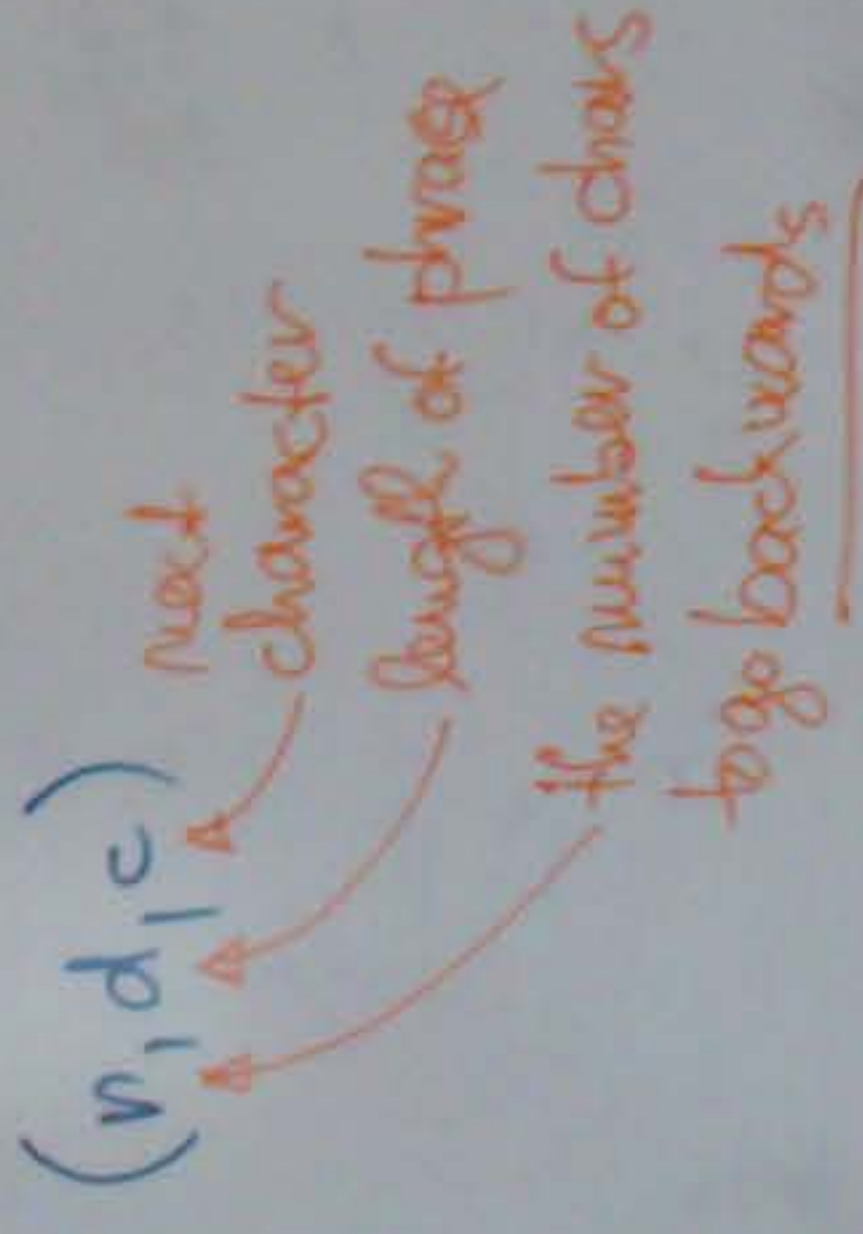 (n, d, c)
next
character
length of phrase
the number of chars
to go backwards